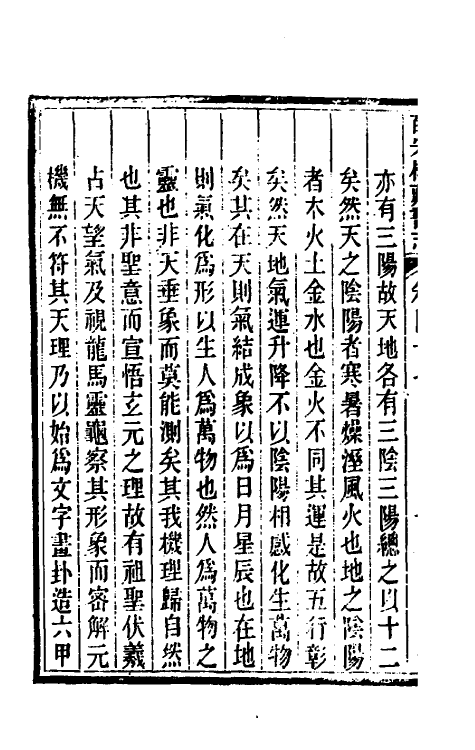 亦有三陽故天地各有三陰三陽總之以十二
矣然天之陰陽者寒暑燥溼風火也地之陰陽
者木火土金水也金火不同其運是故五行彰
矣然天地氣運升降不以陰陽相感化生萬物
矣其在天則氣結成象以爲日月星辰也在地
則氣化爲形以生人爲萬物也然人爲萬物之
靈也非天垂象而莫能測矣其我機理歸自然
也其非聖意而宣悟玄元之理故有祖聖伏羲
占天望氣及視龍馬靈龜察其形象而密解元
機無不符其天理乃以始爲文字畫卦造六甲